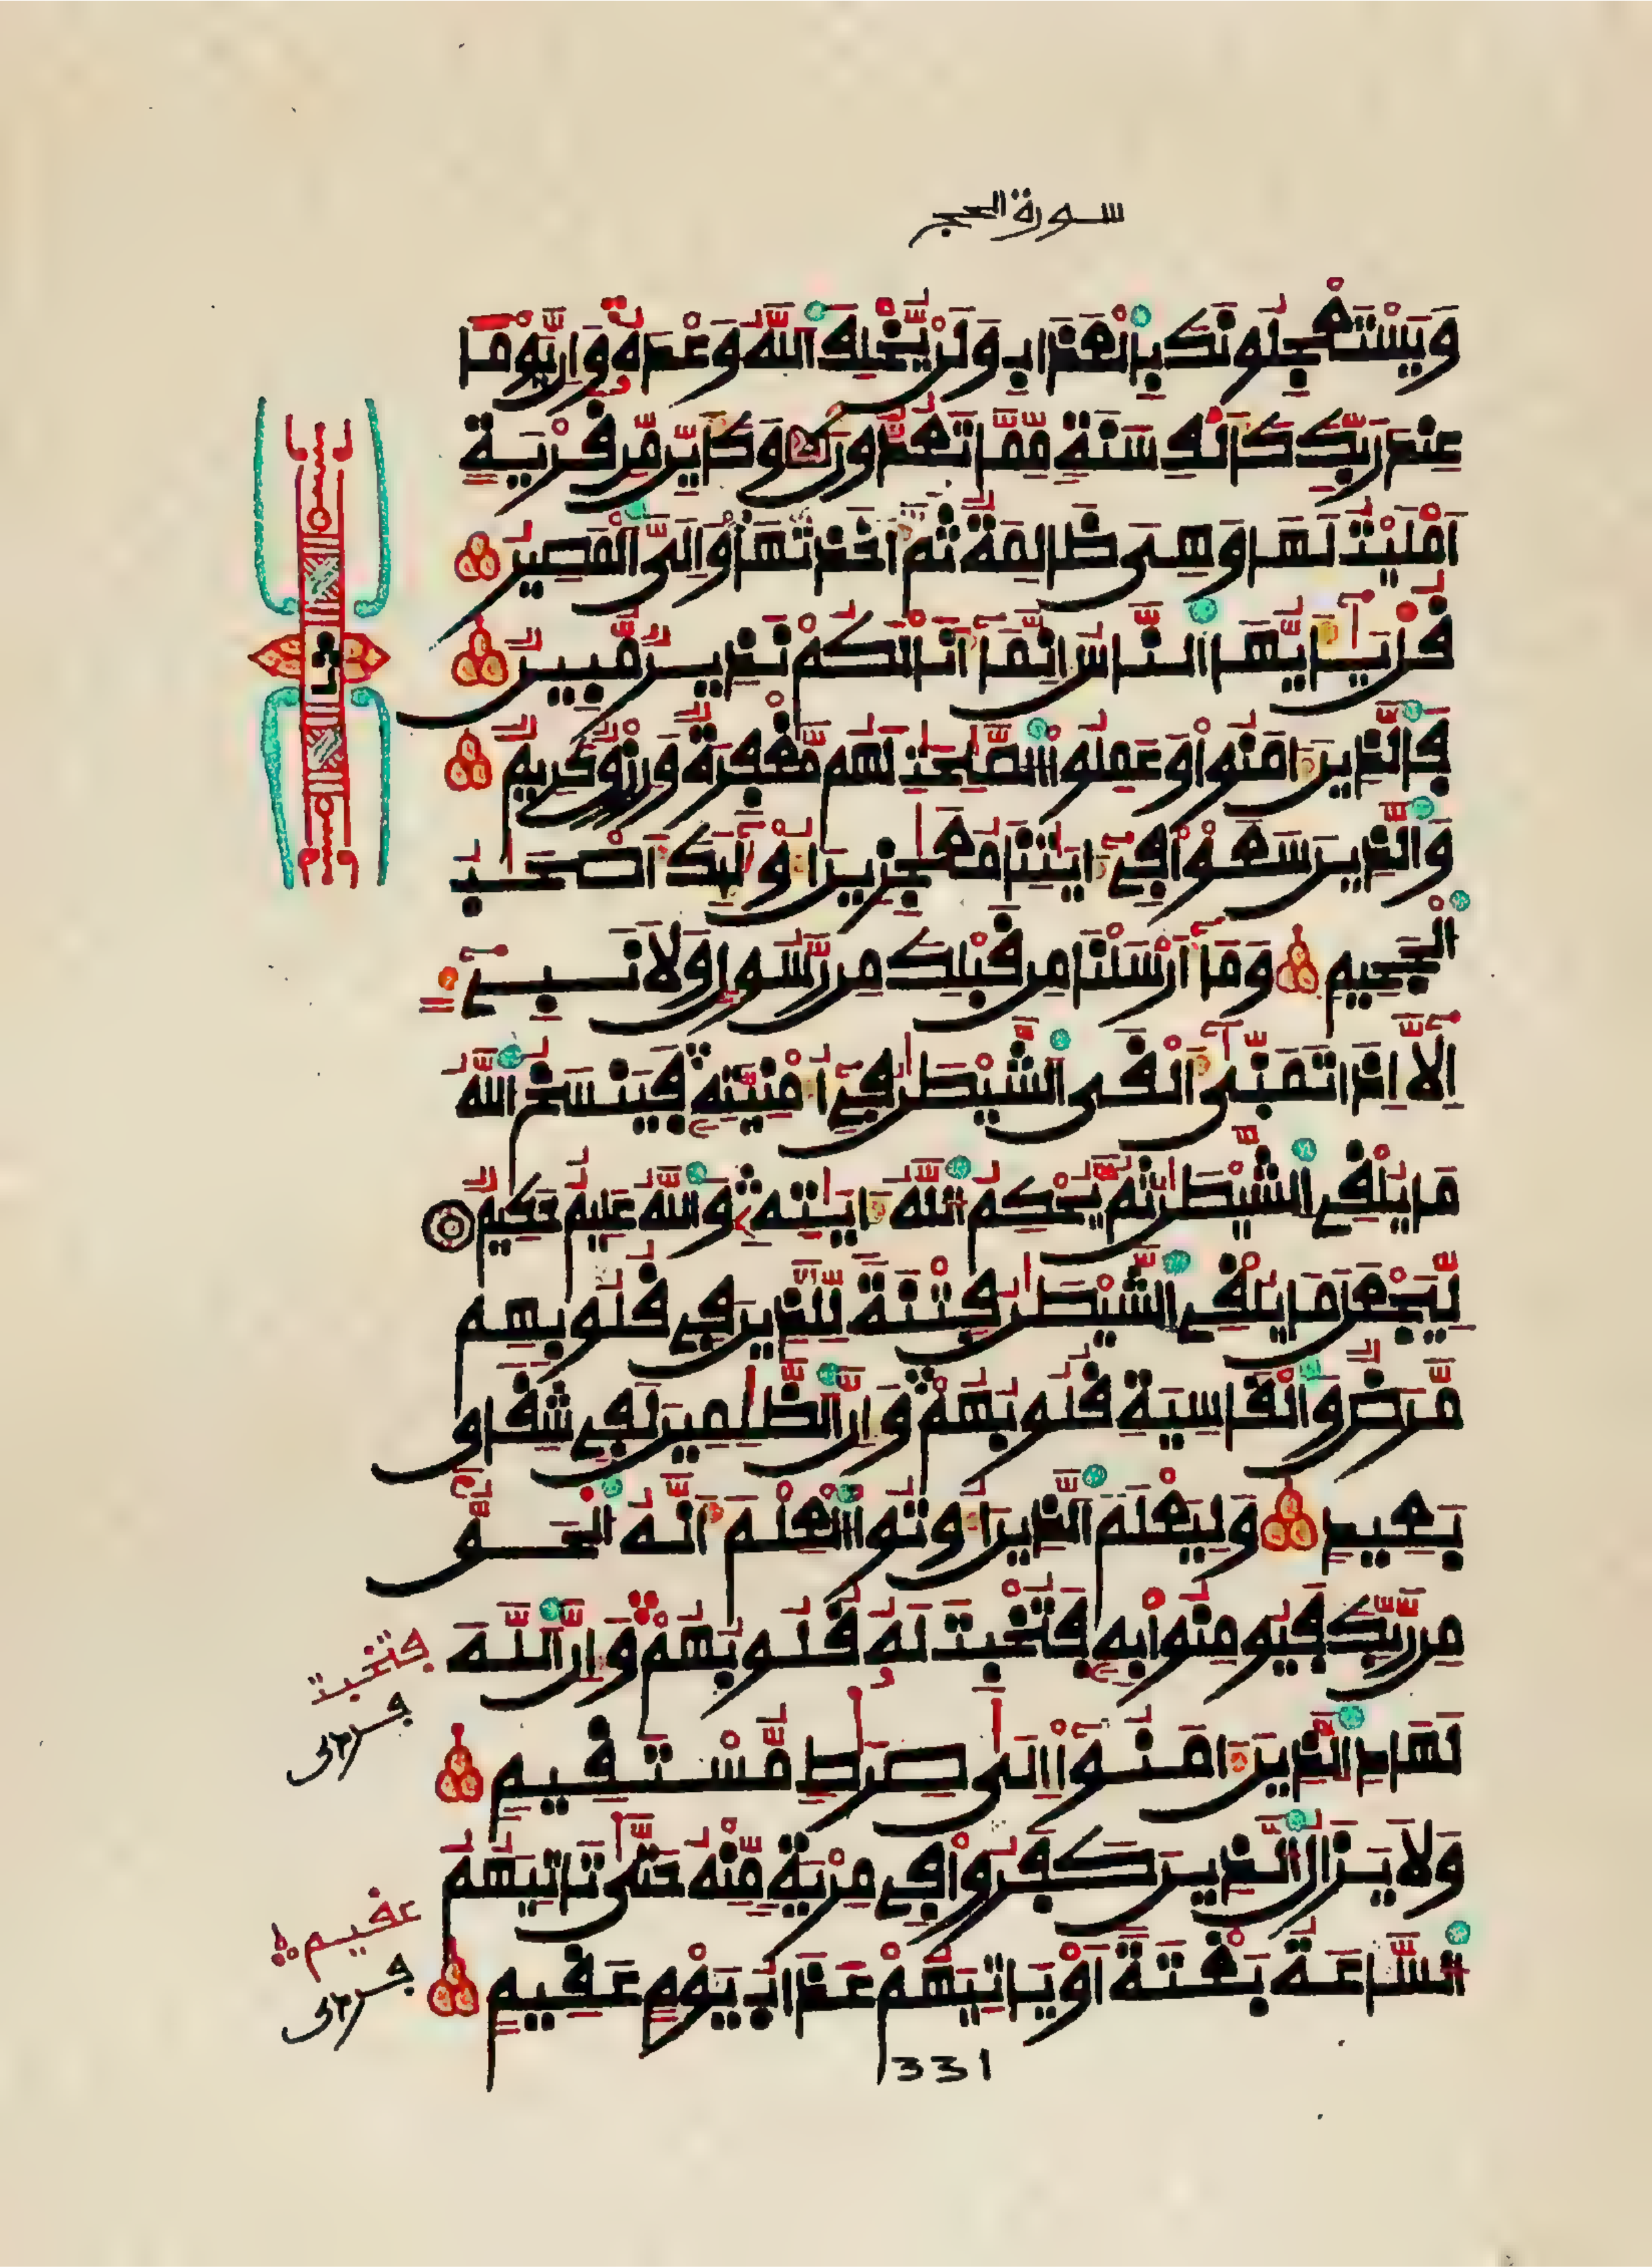 سورة الحج
وَيَسْتَعْجِلُونَكَ بِالْعَذَابِ وَلَنْ يُّخْلِفَ اَللَّهُ وَعْدَهُۥ وَإِنَّ يَوْماً
عِندَ رَبِّكَ كَأَلْفِ سَنَةٍ مِّمَّا تَعُدُّونَ وَكَأَيِّن مِّن قَرْيَةٍ
اَمْلَيْتُ لَهَا وَهِىَ ظَالِمَةٌ ثُمَّ أَخَذتُّهَا وَإِلَىَّ اَلْمَصِيرُ
قُلْ يَٰٓأَيُّهَا اَلنَّاسُ إِنَّمَا أَنَا لَكُمْ نَذِيرٌ مُّبِينٌ
فَالذِينَ ءَامَنُواْ وَعَمِلُواْ اُلصَّٰلِحَٰتِ لَهُم مَّغْفِرَةٌ وَرِزْقٌ كَرِيمٌ
وَالذِينَ سَعَوْاْ فِىٓ ءَايَٰتِنَا مُعَٰجِزِينَ أُوْلَٰٓئِكَ أَصْحَٰبُ
اُلْجَحِيمِ وَمَآ أَرْسَلْنَا مِن قَبْلِكَ مِن رَّسُولٍ وَلَا نَبِىٓءٍ
اِلَّآ إِذَا تَمَنَّىٰٓ أَلْقَى اَلشَّيْطَٰنُ فِىٓ أُمْنِيَّتِهِۦ فَيَنسَخُ اُللَّهُ
مَا يُلْقِى اِلشَّيْطَٰنُ ثُمَّ يُحْكِمُ اُللَّهُ ءَايَٰتِهِۦ وَاللَّهُ عَلِيمٌ حَكِيمٌ
لِّيَجْعَلَ مَا يُلْقِى اِلشَّيْطَٰنُ فِتْنَةً لِّلذِينَ فِى قُلُوبِهِم
مَّرَضٌ وَالْقَاسِيَةِ قُلُوبُهُمْ وَإِنَّ اَلظَّٰلِمِينَ لَفِى شِقَاقٍ
بَعِيدٍ وَلِيَعْلَمَ اَلذِينَ أُوتُواْ اُلْعِلْمَ أَنَّهُ اُلْحَقُّ
مِن رَّبِّكَ فَيُومِنُواْ بِهِۦ فَتُخْبِتَ لَهُۥ قُلُوبُهُمْ وَإِنَّ اَللَّهَ
لَهَادِ اِلذِينَ ءَامَنُوٓاْ إِلَىٰ صِرَٰطٍ مُّسْتَقِيمٍ
وَلَا يَزَالُ اُلذِينَ كَفَرُواْ فِى مِرْيَةٍ مِّنْهُ حَتَّىٰ تَاتِيَهُمُ
اُلسَّاعَةُ بَغْتَةً أَوْ يَاتِيَهُمْ عَذَابُ يَوْمٍ عَقِيمٍ
331
فتخبت
عقيم